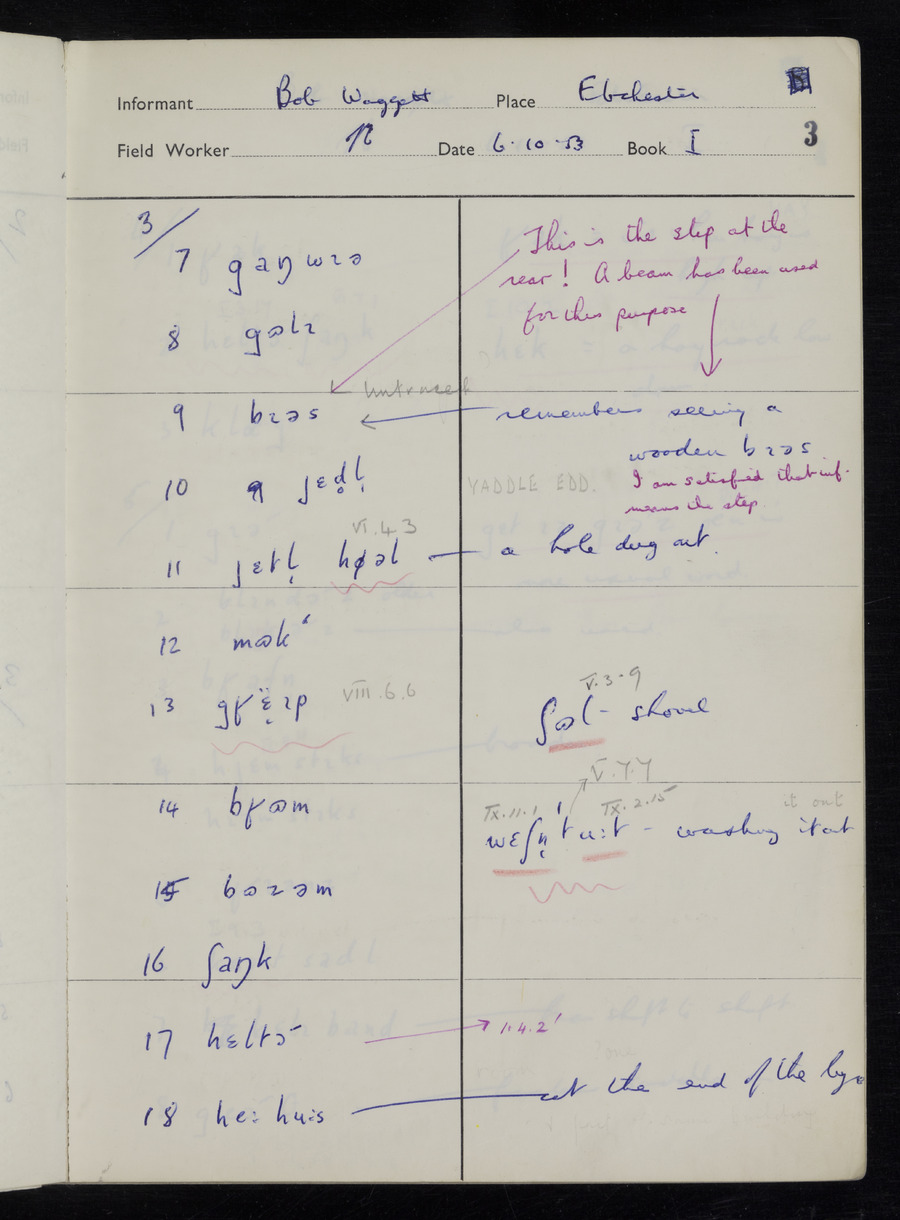 Informant Bob Waggett Place Ebchester
3
Field Worker Date 6.10.53 Book I
3/
7 gaŋwɪə
8 gɵlɪ
This is the step at the
rear! A beam has been used
for this purpose
9 bɹəs
remembers seeing a
wooden bɹəs
I am satisfied that inf.
means the step.
10 jɛdl̩
YADDLE EDD.
11 jɛtl̩ høəl a hole dug out.
VI.4.3
12 mɵkʽ
13
VIII.6.6
V.3.9
ʃɵl - shovel
V.7.7
14
IX.11.1
IX.2.15
it out
wɛʃn̩ t u:t - washing it out
15 bɵɹəm
16 ʃaŋk
17 hɛltɔ̄
1.4.2'
18 he: hu:s at the end of the byre